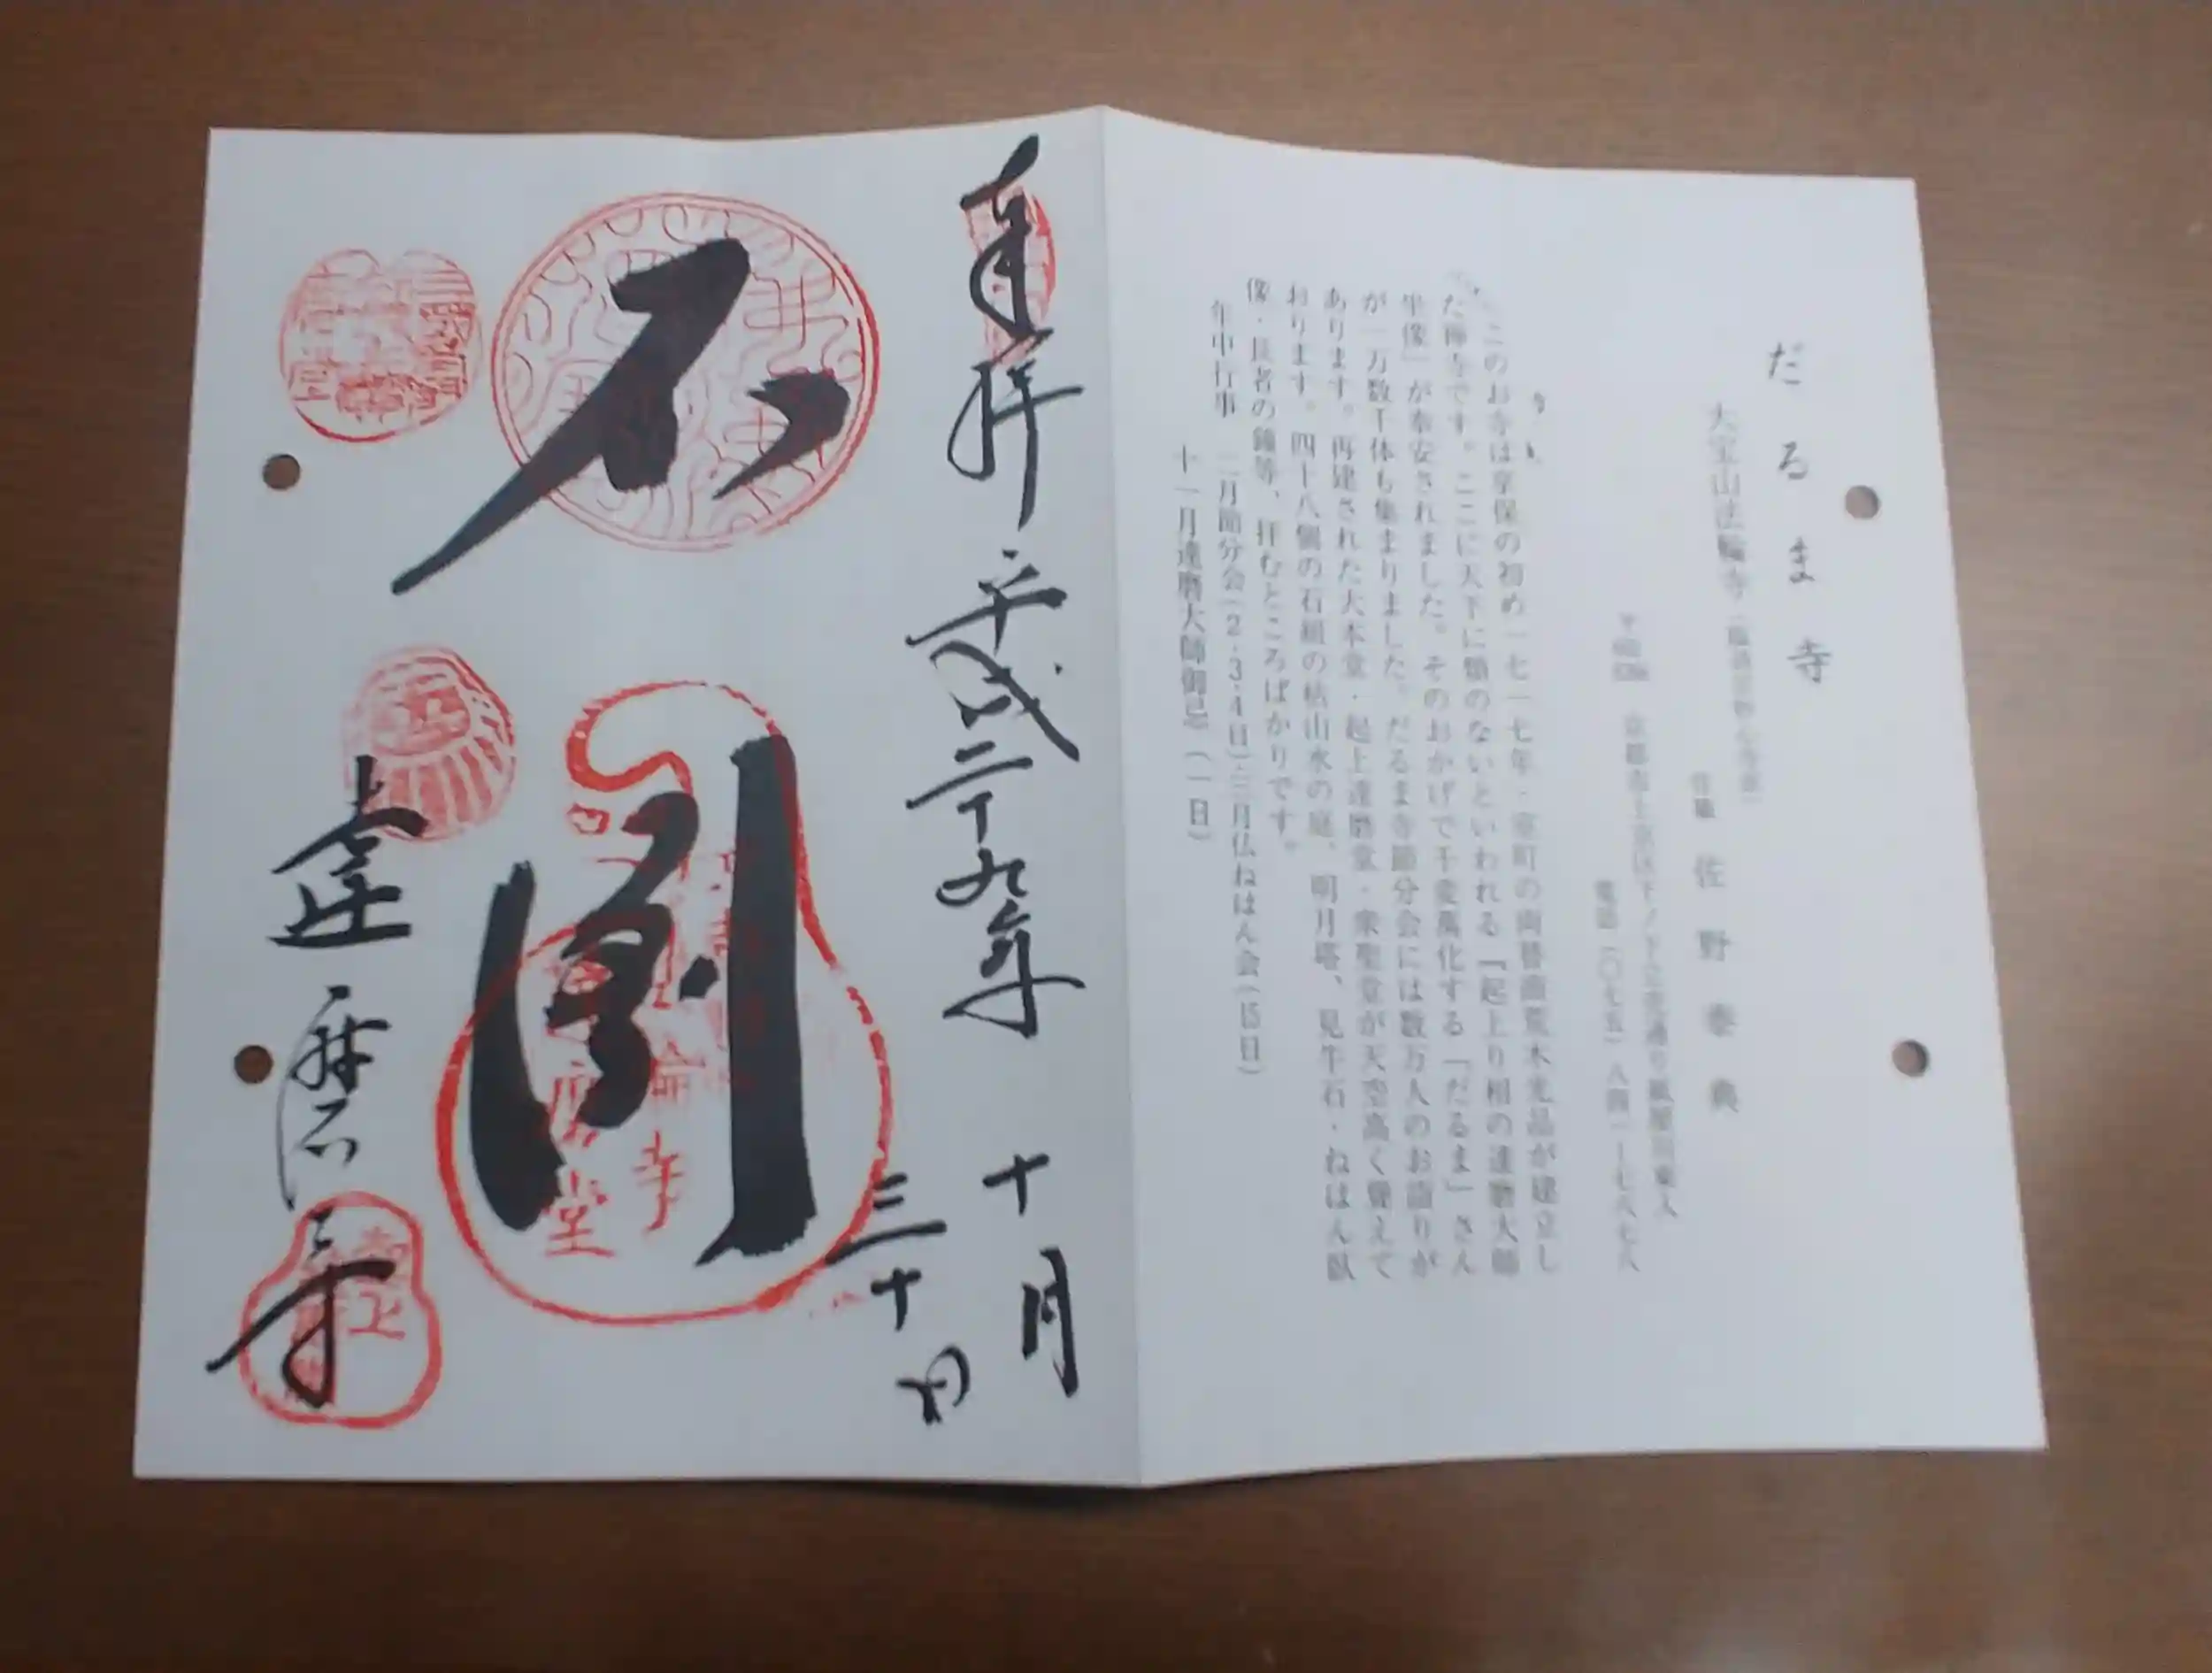 だるま寺
大宝山法輪寺
住職 佐野泰典
京都市上京区下ノ下立売通り紙屋川東入
電話(〇七五)八四一―七八七八
このお寺は享保の初め一七一七年・室町の両替商荒木光品が建立し
た禅寺です。ここに天下に類のないといわれる「起上り相の達磨大師
坐像」が奉安されました。そのおかげで千変萬化する「だるま」さん
が一万数千体も集まりました。だるま寺節分会には数万人のお詣りが
あります。再建された大本堂・起上達磨堂・衆聖堂が天空高く聳えて
おります。四十八個の石組の枯山水の庭、明月塔、見牛石・ねはん臥
像・長者の鐘等、拝むところばかりです。
年中行事 二月節分会(2・3・4日)・三月仏ねはん会(15日)
十一月達磨大師御忌(一日)
奉拝 平成二十九年 十月
三十日
不
倒
達磨寺